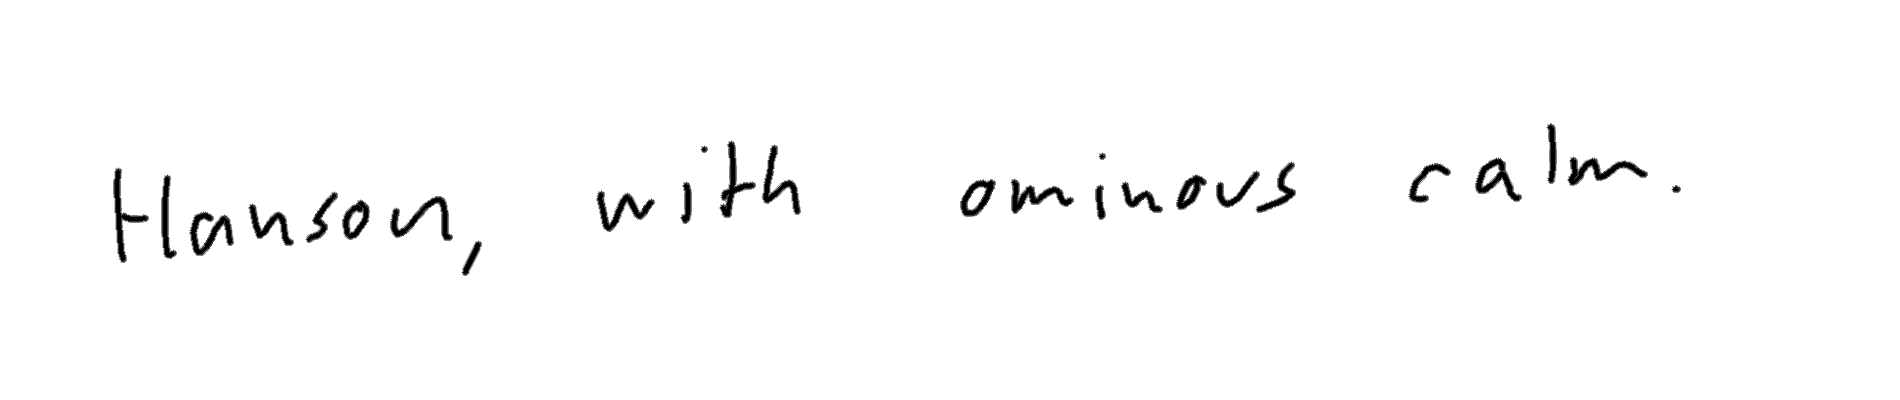 Hanson, with ominous calm.